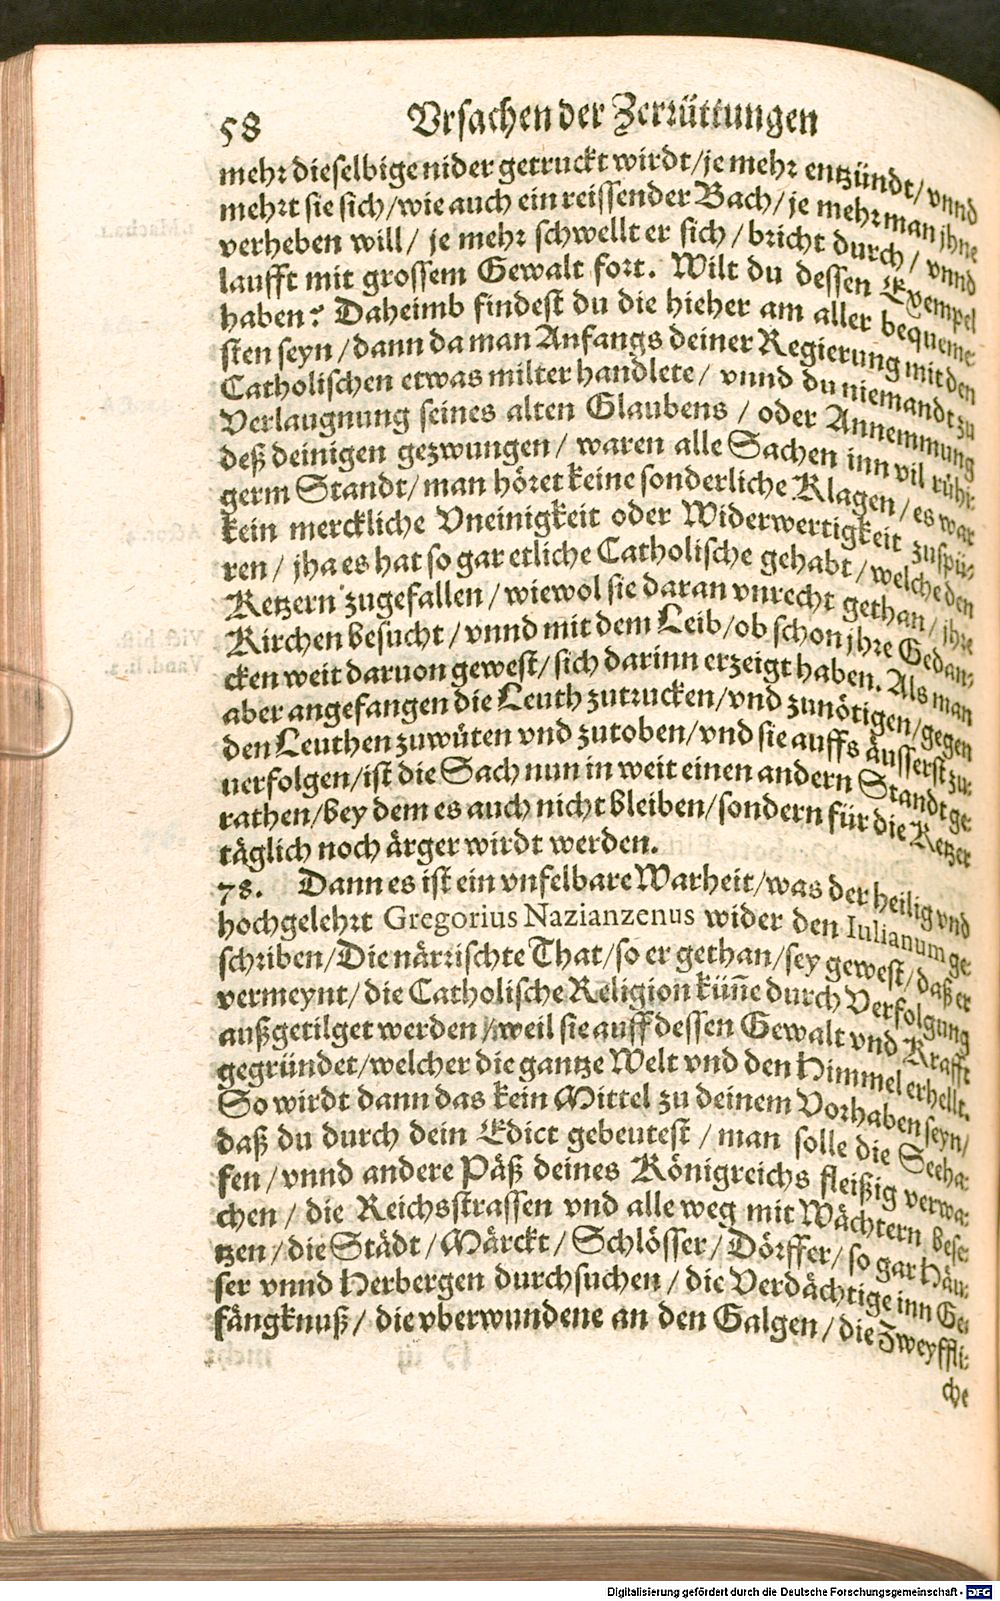 58 Vrsachen der Zerrüttungen
mehr dieselbige nider getruckt wirdt/je mehr entzündt/vnnd
mehrt sie sich/wie auch ein reissender Bach/je mehr man jhne
verheben will/ je mehr schwellt er sich/bricht durch/ vnnd
laufft mit grossem Gewalt fort. Wilt du dessen Exempel
haben? Daheimb findest du die hieher am aller bequeme
sten seyn/dann da man Anfangs deiner Regierung mit den
Catholischen etwas milter handlete/ vnnd du niemandt zu
Verlaugnung seines alten Glaubens / oder Annemmung
deß deinigen gezwungen/ waren alle Sachen inn vil rühi-
germ Standt/man höret keine sonderliche Klagen/es war
kein merckliche Vneinigkeit oder Widerwertigkeit zuspü-
ren/ jha es hat so gar etliche Catholische gehabt/welche den
Ketzern zugefallen/wiewol sie daran vnrecht gethan/jhre
Kirchen besucht/vnnd mit dem Leib/ob schon jhre Gedan-
cken weit daruon gewest/sich darinn erzeigt haben. Als man
aber angefangen die Leuth zutrucken/vnd zunötigen/gegen
den Leuthen zuwüten vnd zutoben/vnd sie auffs äusserst zu-
uerfolgen/ist die Sach nun in weit einen andern Standt ge
rathen/bey dem es auch nicht bleiben/sondern für die Ketzer
täglich noch ärger wirdt werden.
78. Dann es ist ein vnfelbare Warheit/was der heilig vnd
hochgelehrt Gregorius Nazianzenus wider den Iulianum ge
schriben/Die närrischte That/so er gethan/sey gewest/daß er
vermeynt/die Catholische Religion küñe durch Verfolgung
außgetilget werden/weil sie auff dessen Gewalt vnd Krafft
gegründet/welcher die gantze Welt vnd den Himmel erhellt.
So wirdt dann das kein Mittel zu deinem Vorhaben seyn/
daß du durch dein Edict gebeutest /man solle die Seeha-
fen/vnnd andere Päß deines Königreichs fleißig verwa-
chen/ die Reichsstrassen vnd alle weg mit Wächtern bese-
tzen/die Städt/Märckt/Schlösser/Dörffer/so gar Häu-
ser vnnd Herbergen durchsuchen/die Verdächtige inn Ge-
fängknuß/ die vberwundene an den Galgen/die Zweyffli-
che
Digitalisierung gefördert durch die Deutsche Forschungsgemeinschaft - DFG